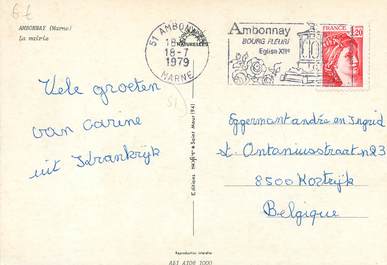 6€
AMBONNAY (Marne)
La mairie
51 AMBONNAY
18-7
1979
MARNE
Ambonnay
BOURG FLEURI
Eglise XIIe
FRANCE
1,20
51
Vele groeten
van Carine
uit Frankrijk
Eggermont andré en Ingrid
st. Antoniusstraat n23
8500 Kortrijk
Belgique
Reproduction interdite